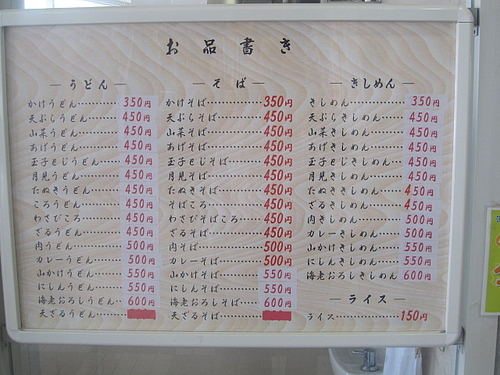 お品書き
― うどん ―
かけうどん………350円
天ぷらうどん………450円
山菜うどん………450円
あげうどん………450円
玉子とじうどん………450円
月見うどん………450円
たぬきうどん………450円
ころうどん………450円
わさびころ………450円
ざるうどん………450円
肉うどん………500円
カレーうどん………500円
山かけうどん………550円
にしんうどん………550円
海老おろしうどん………600円
天ざるうどん………
― そば ―
かけそば………350円
天ぷらそば………450円
山菜そば………450円
あげそば………450円
玉子とじそば………450円
月見そば………450円
たぬきそば………450円
そばころ………450円
わさびそばころ………450円
ざるそば………450円
肉そば………500円
カレーそば………500円
山かけそば………550円
にしんそば………550円
海老おろしそば………600円
天ざるそば………
― きしめん ―
きしめん………350円
天ぷらきしめん………450円
山菜きしめん………450円
あげきしめん………450円
玉子とじきしめん………450円
月見きしめん………450円
たぬききしめん………450円
ざるきしめん………450円
肉きしめん………500円
カレーきしめん………500円
山かけきしめん………550円
にしんきしめん………550円
海老おろしきしめん………600円
― ライス ―
ライス………150円